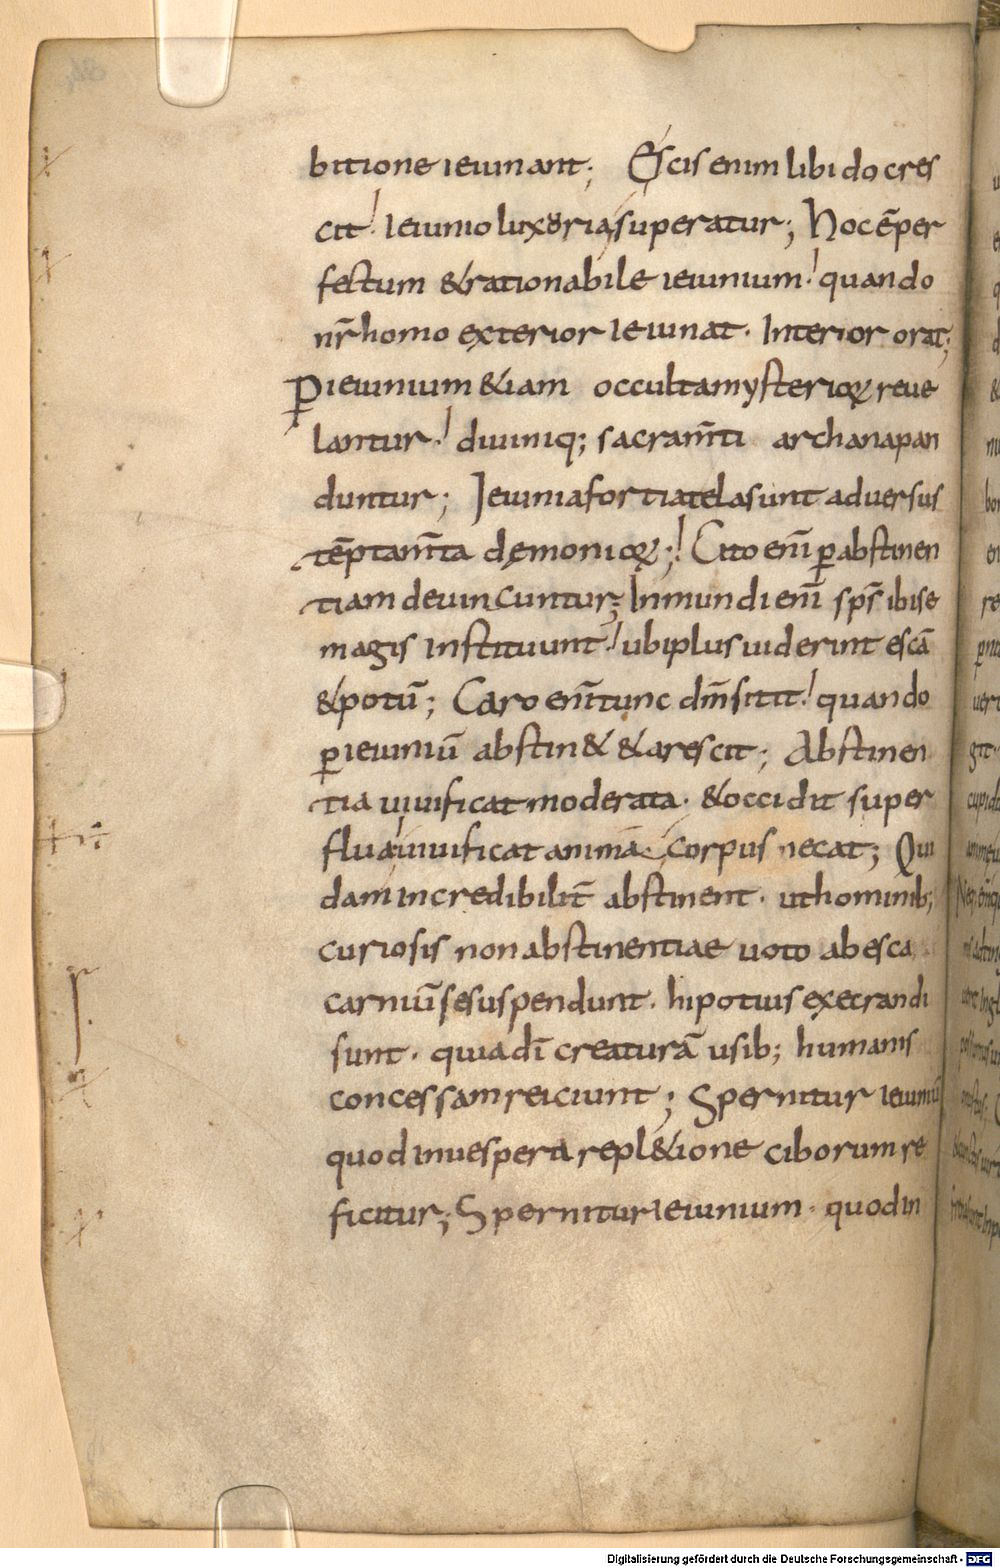 bitione ieiunant; Escis enim libido cres
cit! Ieiunio luxoria superatur; Hoc ē per
fectum & rationabile ieiunium! quando
nr̄ homo exterior ieiunat. Interior orat;
P̱ ieiunium &iam occulta mysterioꝝ reue
lantur! diuiniq; sacram̄ti archana pan
duntur; Ieiunia fortia tela sunt aduersus
tēptam̄ta dęmonioꝝ;! Cito enī ꝑ abstinen
tiam deuincuntur; Inmundi enī sp̄s ibi se
magis instituunt! ubi plus uiderint escā
& potū; Caro enī tunc dm̄ sitit! quando
ꝑ ieiuniū abstin& & arescit; Abstinen
tia uiuificat moderata. & occidit super
flua uiuificat animā. corpus necat; Qui
dam incredibilit̄ abstinent. ut hominib;
curiosis non abstinentiae uoto ab esca
carniū se suspendunt. hi potius execrandi
sunt. quia dī creaturā usib; humanis
concessam reiciunt; Spernitur ieiuniū
quod in uespera repl&ione ciborum re
ficitur; Spernitur ieiunium. quod in
Digitalisierung gefördert durch die Deutsche Forschungsgemeinschaft - DFG